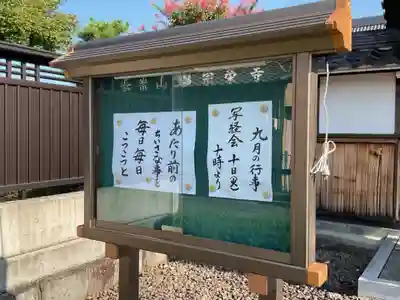 九月の行事
写経会 十日(火)
十時より
あたり前の
ちいさな事を
毎日毎日
こつこつと